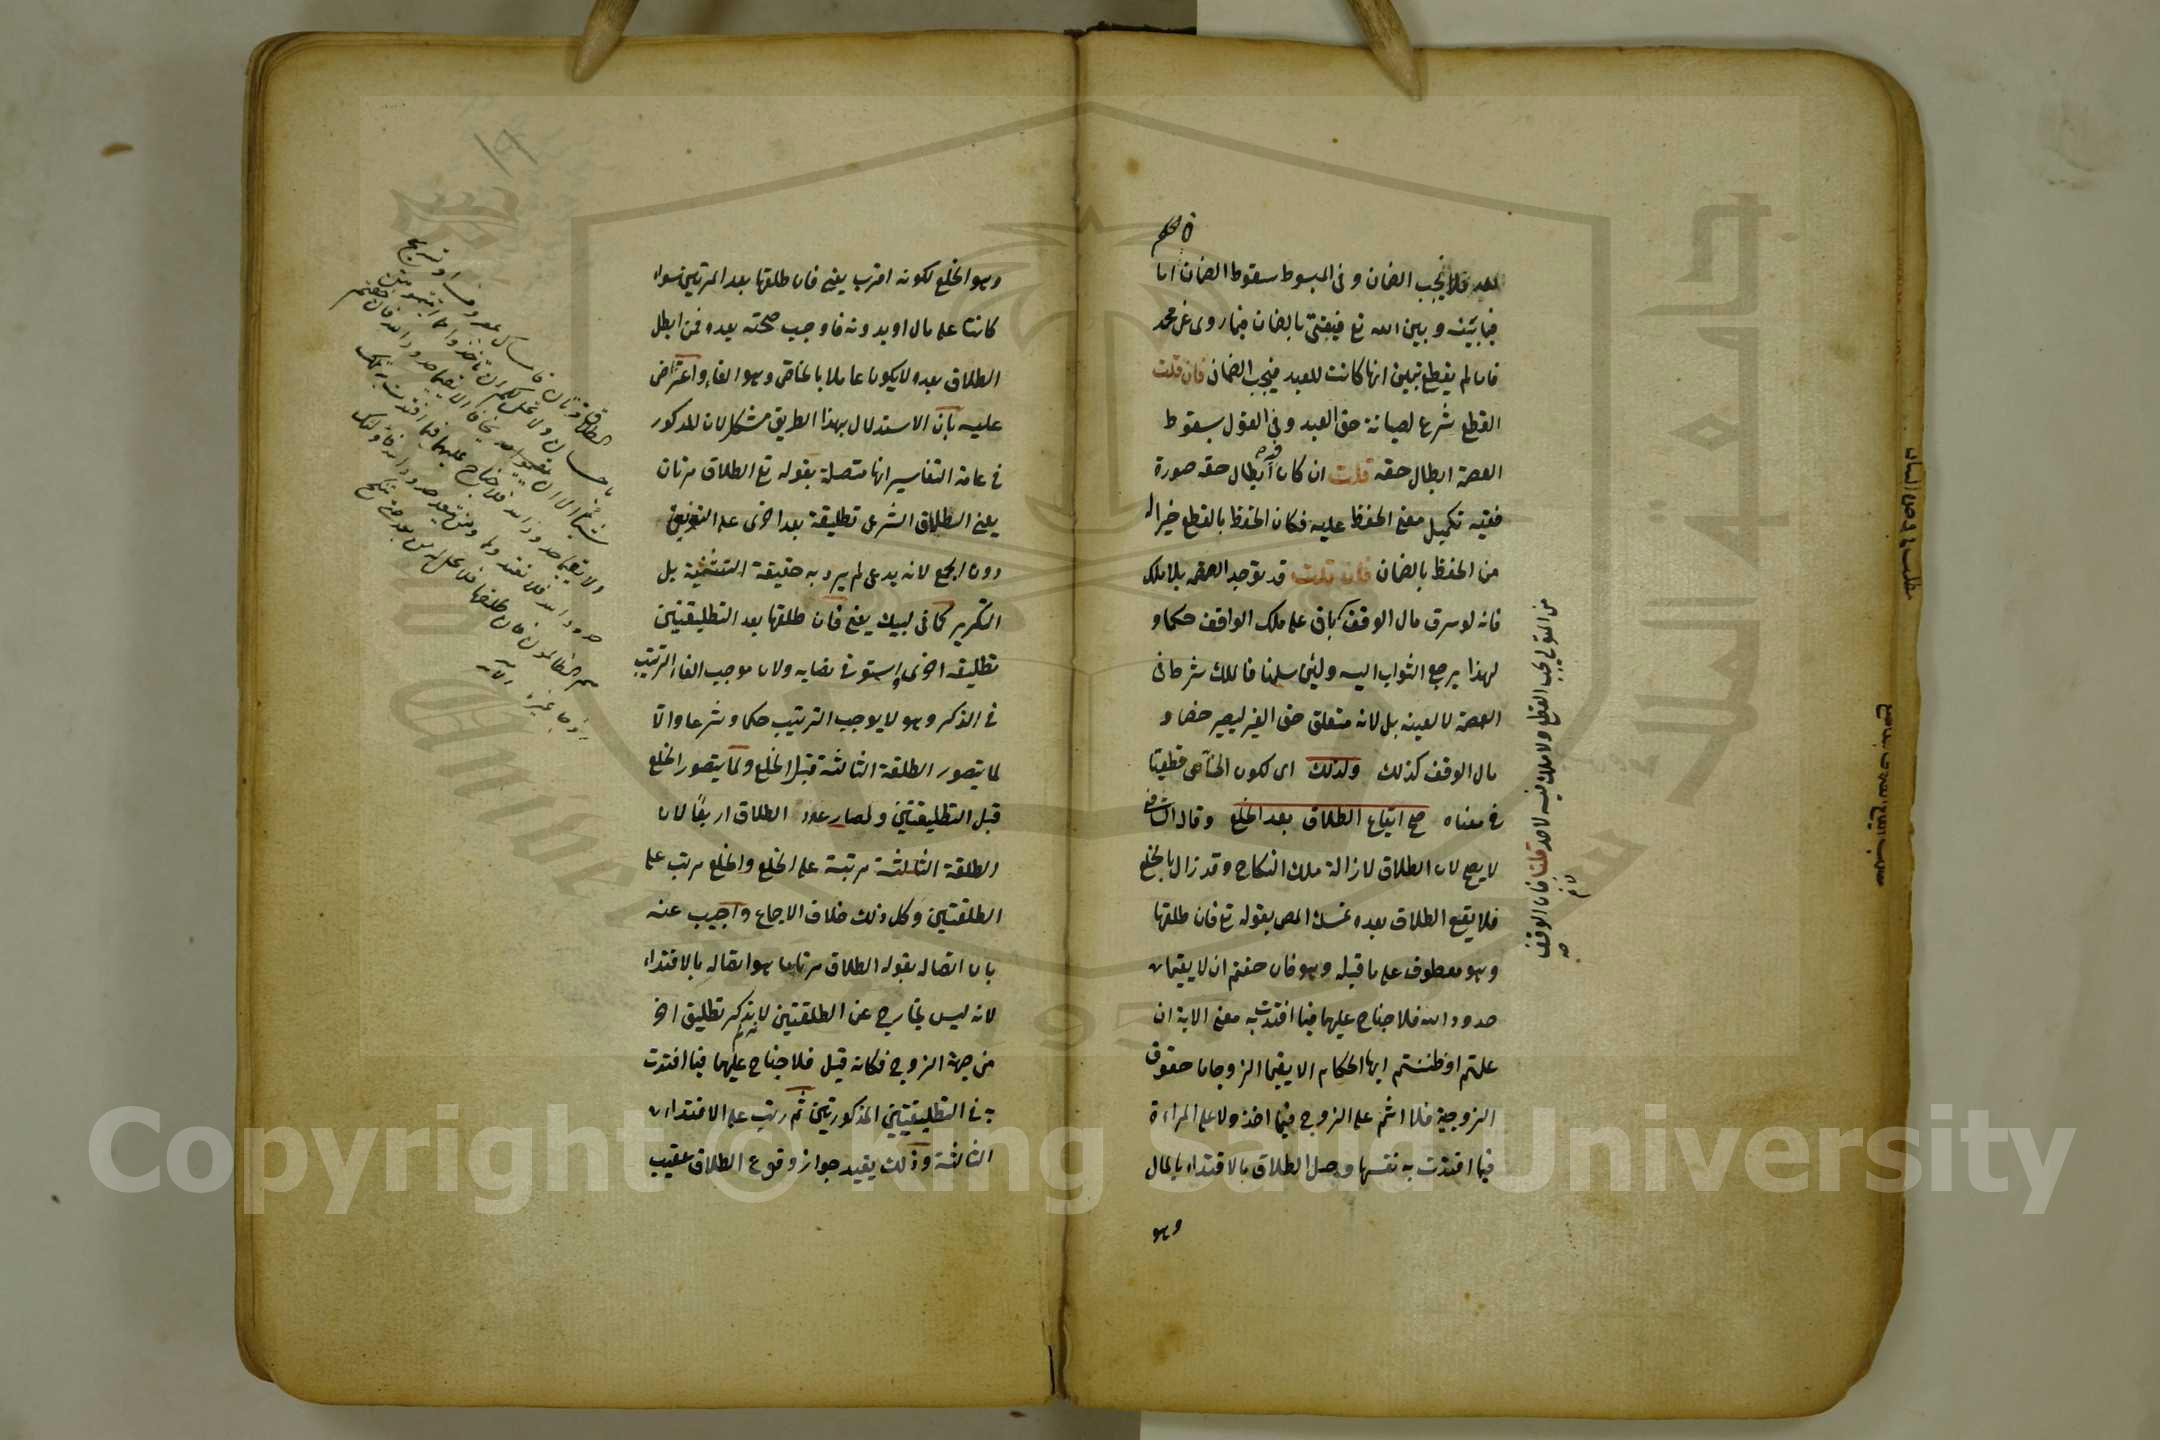 للعبد فلا يجب الضمان وفى المبسوط سقوط الضمان اما
فيما بينه وبين الله تع فيفتى بالضمان فيما روى عن محمد
فاما لم يقطع تبين انها كانت للعبد فيجب الضمان فان قلت
القطع شرع لصيانة حق العبد وفى القول بسقوط
العصمة ابطال حقه قلت ان كان فيه ابطال حقه صورة
ففيه تكميل معنى الحفظ عليه فكان الحفظ بالقطع خيرا له
من الحفظ بالضمان فان قلت قد توجد العصمة بلا ملك
فانه لو سرق مال الوقف كباق على ملك الواقف حكما و
لهذا يرجع الثواب اليه ولئن سلمنا فالملك شرط فى
العصمة لا لعينه بل لانه متعلق حق الغير ليصير خصما و
مال الوقف كذلك ولذلك اى لكون الخاص قطعيا
فى معناه صح ايقاع الطلاق بعد الخلع وقال الشافعى
لا يصح لان الطلاق لازالة ملك النكاح وقد زال بالخلع
فلا يقع الطلاق بعده تمسك المص بقوله تع فان طلقها
وهو معطوف على ما قبله وهو فان خفتم ان لا يقيما
حدود الله فلا جناح عليهما فيما افتدت به معنى الاية ان
علمتم او ظننتم ايها الحكام الا يقيما الزوجان حقوق
الزوجية فلا اثم على الزوج فيما اخذ ولا على المراءة
فيما افتدت به نفسها وصل الطلاق بالافتداء بالمال
وهو
من المتولى يجب القطع ولا ملك فيه لاحد قلنا فان الوقف
صح
وهو الخلع لكونه اقرب يعنى فان طلقها بعد المرتين سواء
كانتا على مال او بدونه فاوجب صحته بعده فمن ابطل
الطلاق بعده لا يكون عاملا بالخاص وهو الفاء واعترض
عليه بان الاستدلال بهذا الطريق مشكل لان المذكور
فى عامة التفاسير انها متصلة بقوله تع الطلاق مرتان
يعنى الطلاق الشرعى تطليقة بعد اخرى على التفريق
دون الجمع لانه يدعى لم يرد به حقيقة التثنية بل
التكرير كما فى لبيك يعنى فان طلقها بعد التطليقتين
تطليقة اخرى واستوفى نصابه ولان موجب الفاء الترتيب
فى الذكر وهو لا يوجب الترتيب حكما وشرعا والا
لما يتصور الطلقة الثالثة قبل الخلع ولما يتصور الخلع
قبل التطليقتين ولصار عدد الطلاق اربعًا لان
الطلقة الثالثة مرتبة على الخلع والخلع مرتب على
الطلقتين وكل ذلك خلاف الاجماع واجيب عنه
بان اتصاله بقوله الطلاق مرتان هو اتصاله بالافتداء
لانه ليس بخارج عن الطلقتين لا يذكر تطليق اخر
من جهة الزوج فكانه قيل فلا جناح عليهما فيما افتدت
به فى التطليقتين المذكورتين ثم رتب على الافتداء
الثالثة وذلك يفيد جواز وقوع الطلاق عقيب
الطلاق مرتان فامساك بمعروف او تسريح
باحسان ولا يحل لكم ان تاخذوا مما اتيتموهن
شيئا الا ان يخافا الا يقيما حدود الله فان خفتم
الا يقيما حدود الله فلا جناح عليهما فيما افتدت به تلك
حدود الله فلا تعتدوها ومن يتعد حدود الله فاولئك
هم الظالمون فان طلقها فلا تحل له من بعد حتى تنكح
زوجا غيره الاية
١٩
Copyright © King Saud University